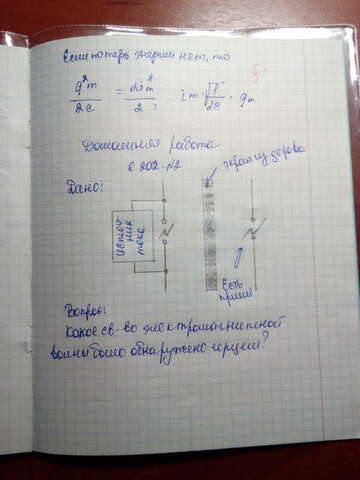 Если потерь энергии нет, то
5
q²m / 2c = Li²m / 2; im = √1/2c · qm
Домашняя работа
с 202 - №2
Дано:
экран из дерева
источ
ник
тока
Есть
прием
Вопрос:
Какое св-во электромагнитной
волны было обнаружено герцем?